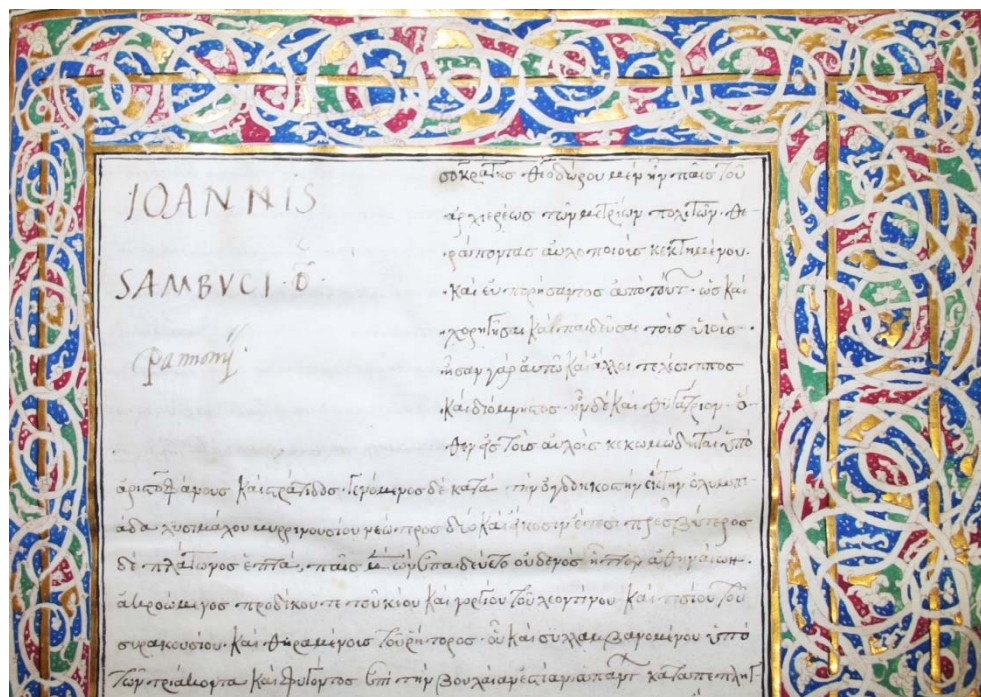 IOANNIS
SAMBVCI
Pannonij
σοκράτης θεοδώρου μὲν ἦν παῖς τοῦ
ἀρχιερέως τῶν μετρίων πολιτῶν· θε
ράποντας αὐλοποιοὺς κεκτημένου·
καὶ εὐπορήσαντος ἀπὸ τούτ ὡς καὶ
χορηγῆσαι καὶ παιδεῦσαι τοὺς υἱούς·
ἦσαν γὰρ αὐτῶ καὶ ἄλλοι τελέσιππος
καὶ διόμνηστος· ἦν δὲ καὶ θυγάτριον· ὅ
θεν εἰς τοὺς αὐλοὺς κεκωμώδηται ὑπὸ
ἀριστοφάνους καὶ στράτιδος· γενόμενος δὲ κατὰ τὴν ὀγδοηκοστὴν ἕκτην ὀλυμπι
άδα λυσιμάχου μυρρινουσίου νεώτερος δύο καὶ εἴκοσιν ἔτεσι πρεσβύτερος
δὲ πλάτωνος ἑπτά, παῖς μὲν ὢν ἐπαιδεύετο οὐδενὸς ἧττον ἀθηναίων·
ἀκροώμενος προδίκου τε τοῦ κίου καὶ γοργίου τοῦ λεοντίνου καὶ τισίου τοῦ
συρακουσίου· καὶ θηραμένους τοῦ ῥήτορος· οὗ καὶ συλλαμβανομένου ὑπὸ
τῶν τριάκοντα καὶ φυγόντος ἐπὶ τὴν βουλαίαν ἑστίαν ἁπάντ καταπεπληγ